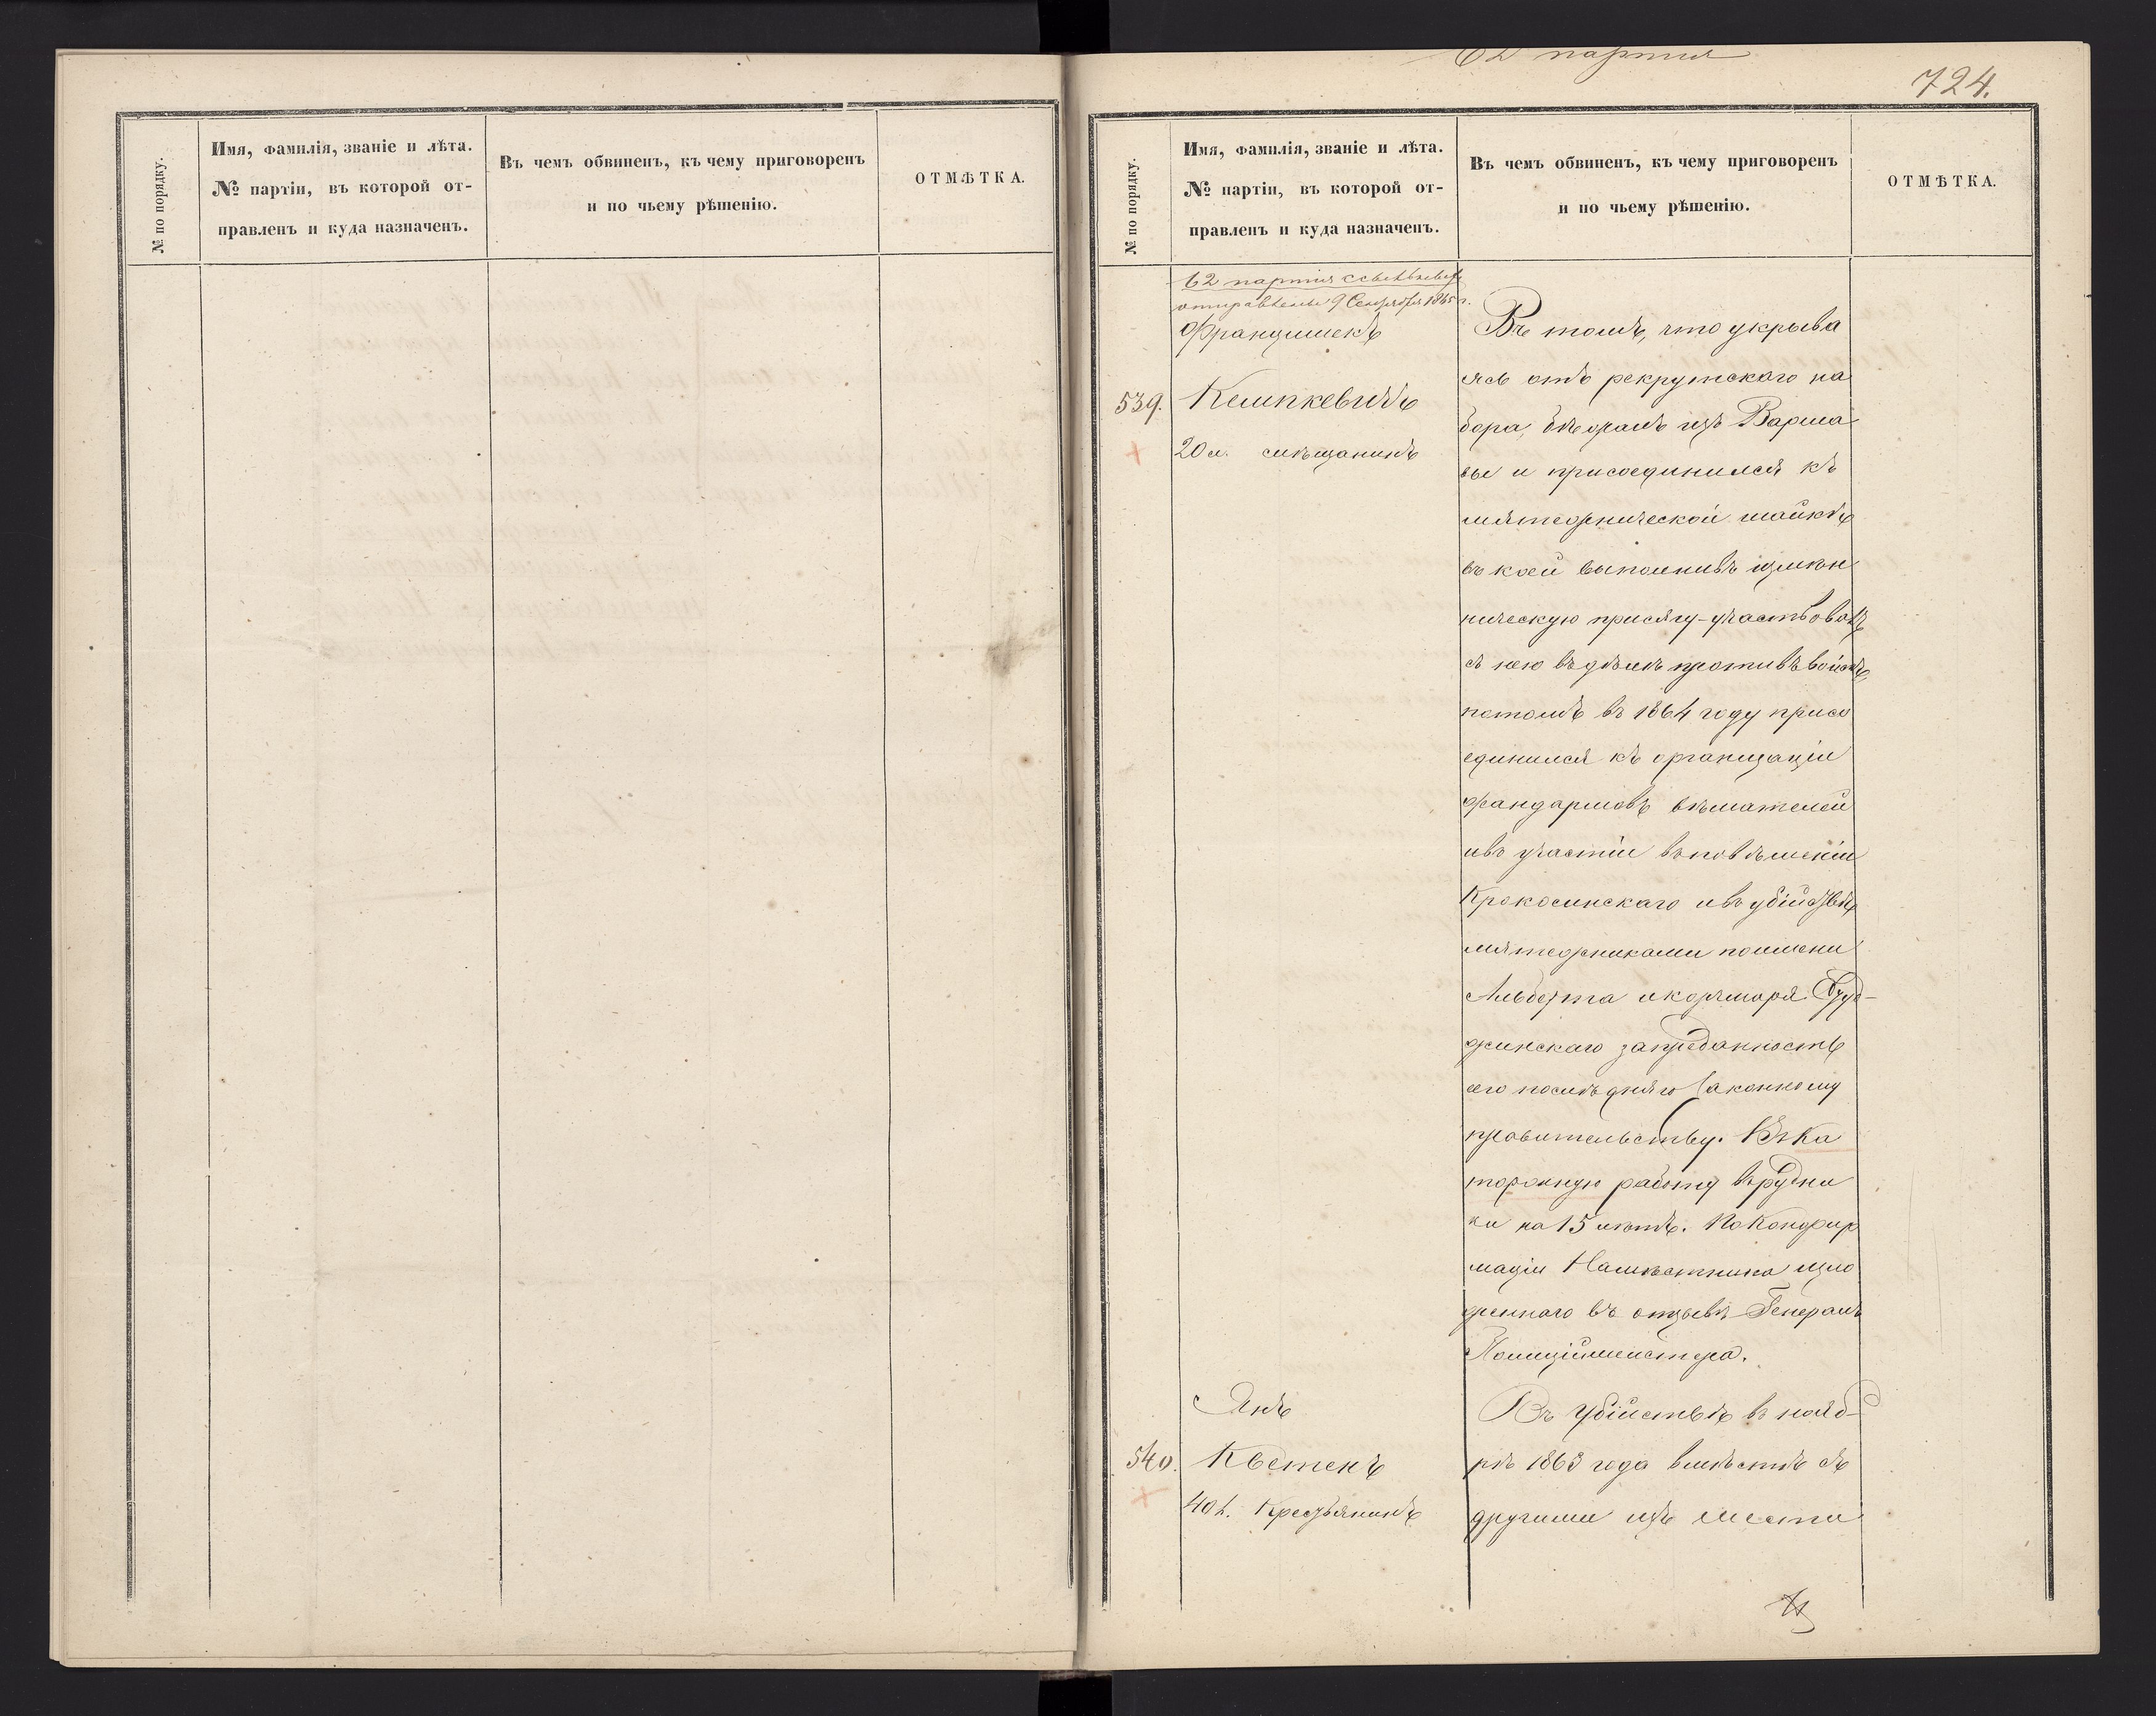 № по порядку.
Имя, фамилія, званіе и лѣта.
№ партіи, въ которой от-
правленъ и куда назначенъ.
Въ чемъ обвиненъ, къ чему приговоренъ
и по чьему рѣшенію.
ОТМѢТКА.
62 партія
724.
№ по порядку.
Имя, фамилія, званіе и лѣта.
№ партіи, въ которой от-
правленъ и куда назначенъ.
Въ чемъ обвиненъ, къ чему приговоренъ
и по чьему рѣшенію.
ОТМѢТКА.
62 партія
отправлена 9 Сентября 1865 г.
Францишекъ
539. Кешпкевичъ
20 л. мѣщанинъ
Въ томъ, что укрыва
ясь отъ рекрутскаго на
бора, бѣжалъ изъ Варша
вы и присоединился къ
мятежнической шайкѣ
въ коей выполнивъ измѣн
ническую присягу - участвовалъ
съ нею въ дѣлѣ противъ войскъ,
потомъ въ 1864 году присо
единился къ организаціи
жандармовъ вѣшателей
ивъ участіи въ повѣшеніи
Крокосинскаго ивъ убійствѣ
мятежниками по имени
Альберта и корчмаря
жинскаго за преданность
его послѣдняго Законному
правительству. Въ Ка
торжную работу въ рудни
ки на 15 лѣтъ. По Конфир
маціи Намѣстника изло
женнаго въ отзывѣ Генералъ
Полиціймейстера.
Янъ
540. Кветенъ
40 л. Крестьянинъ
Въ убійствѣ въ нояб-
рѣ 1863 года вмѣстѣ съ
другими изъ мести